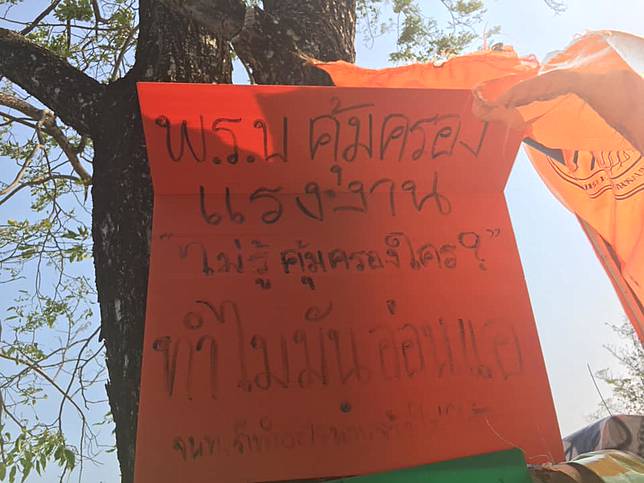 พ.ร.บ คุ้มครอง
แรงงาน
"ไม่รู้ คุ้มครองใคร?"
ทำไมมันอ่อนแอ
จนท.